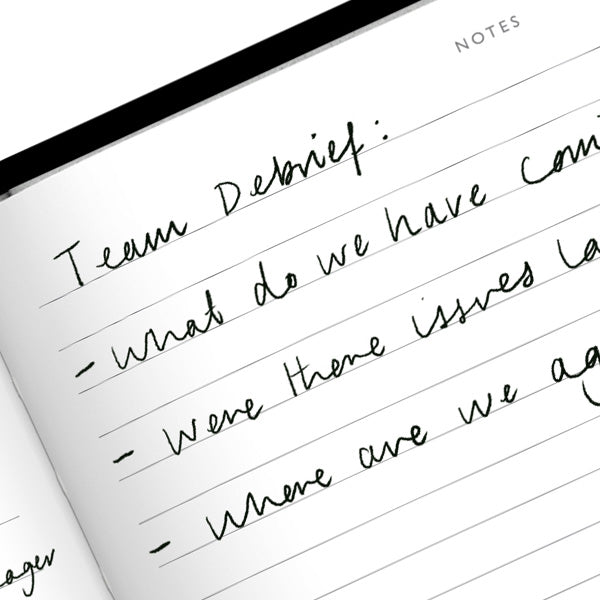 NOTES
Team Debrief:
- What do we have
- Were there issues
- Where are we